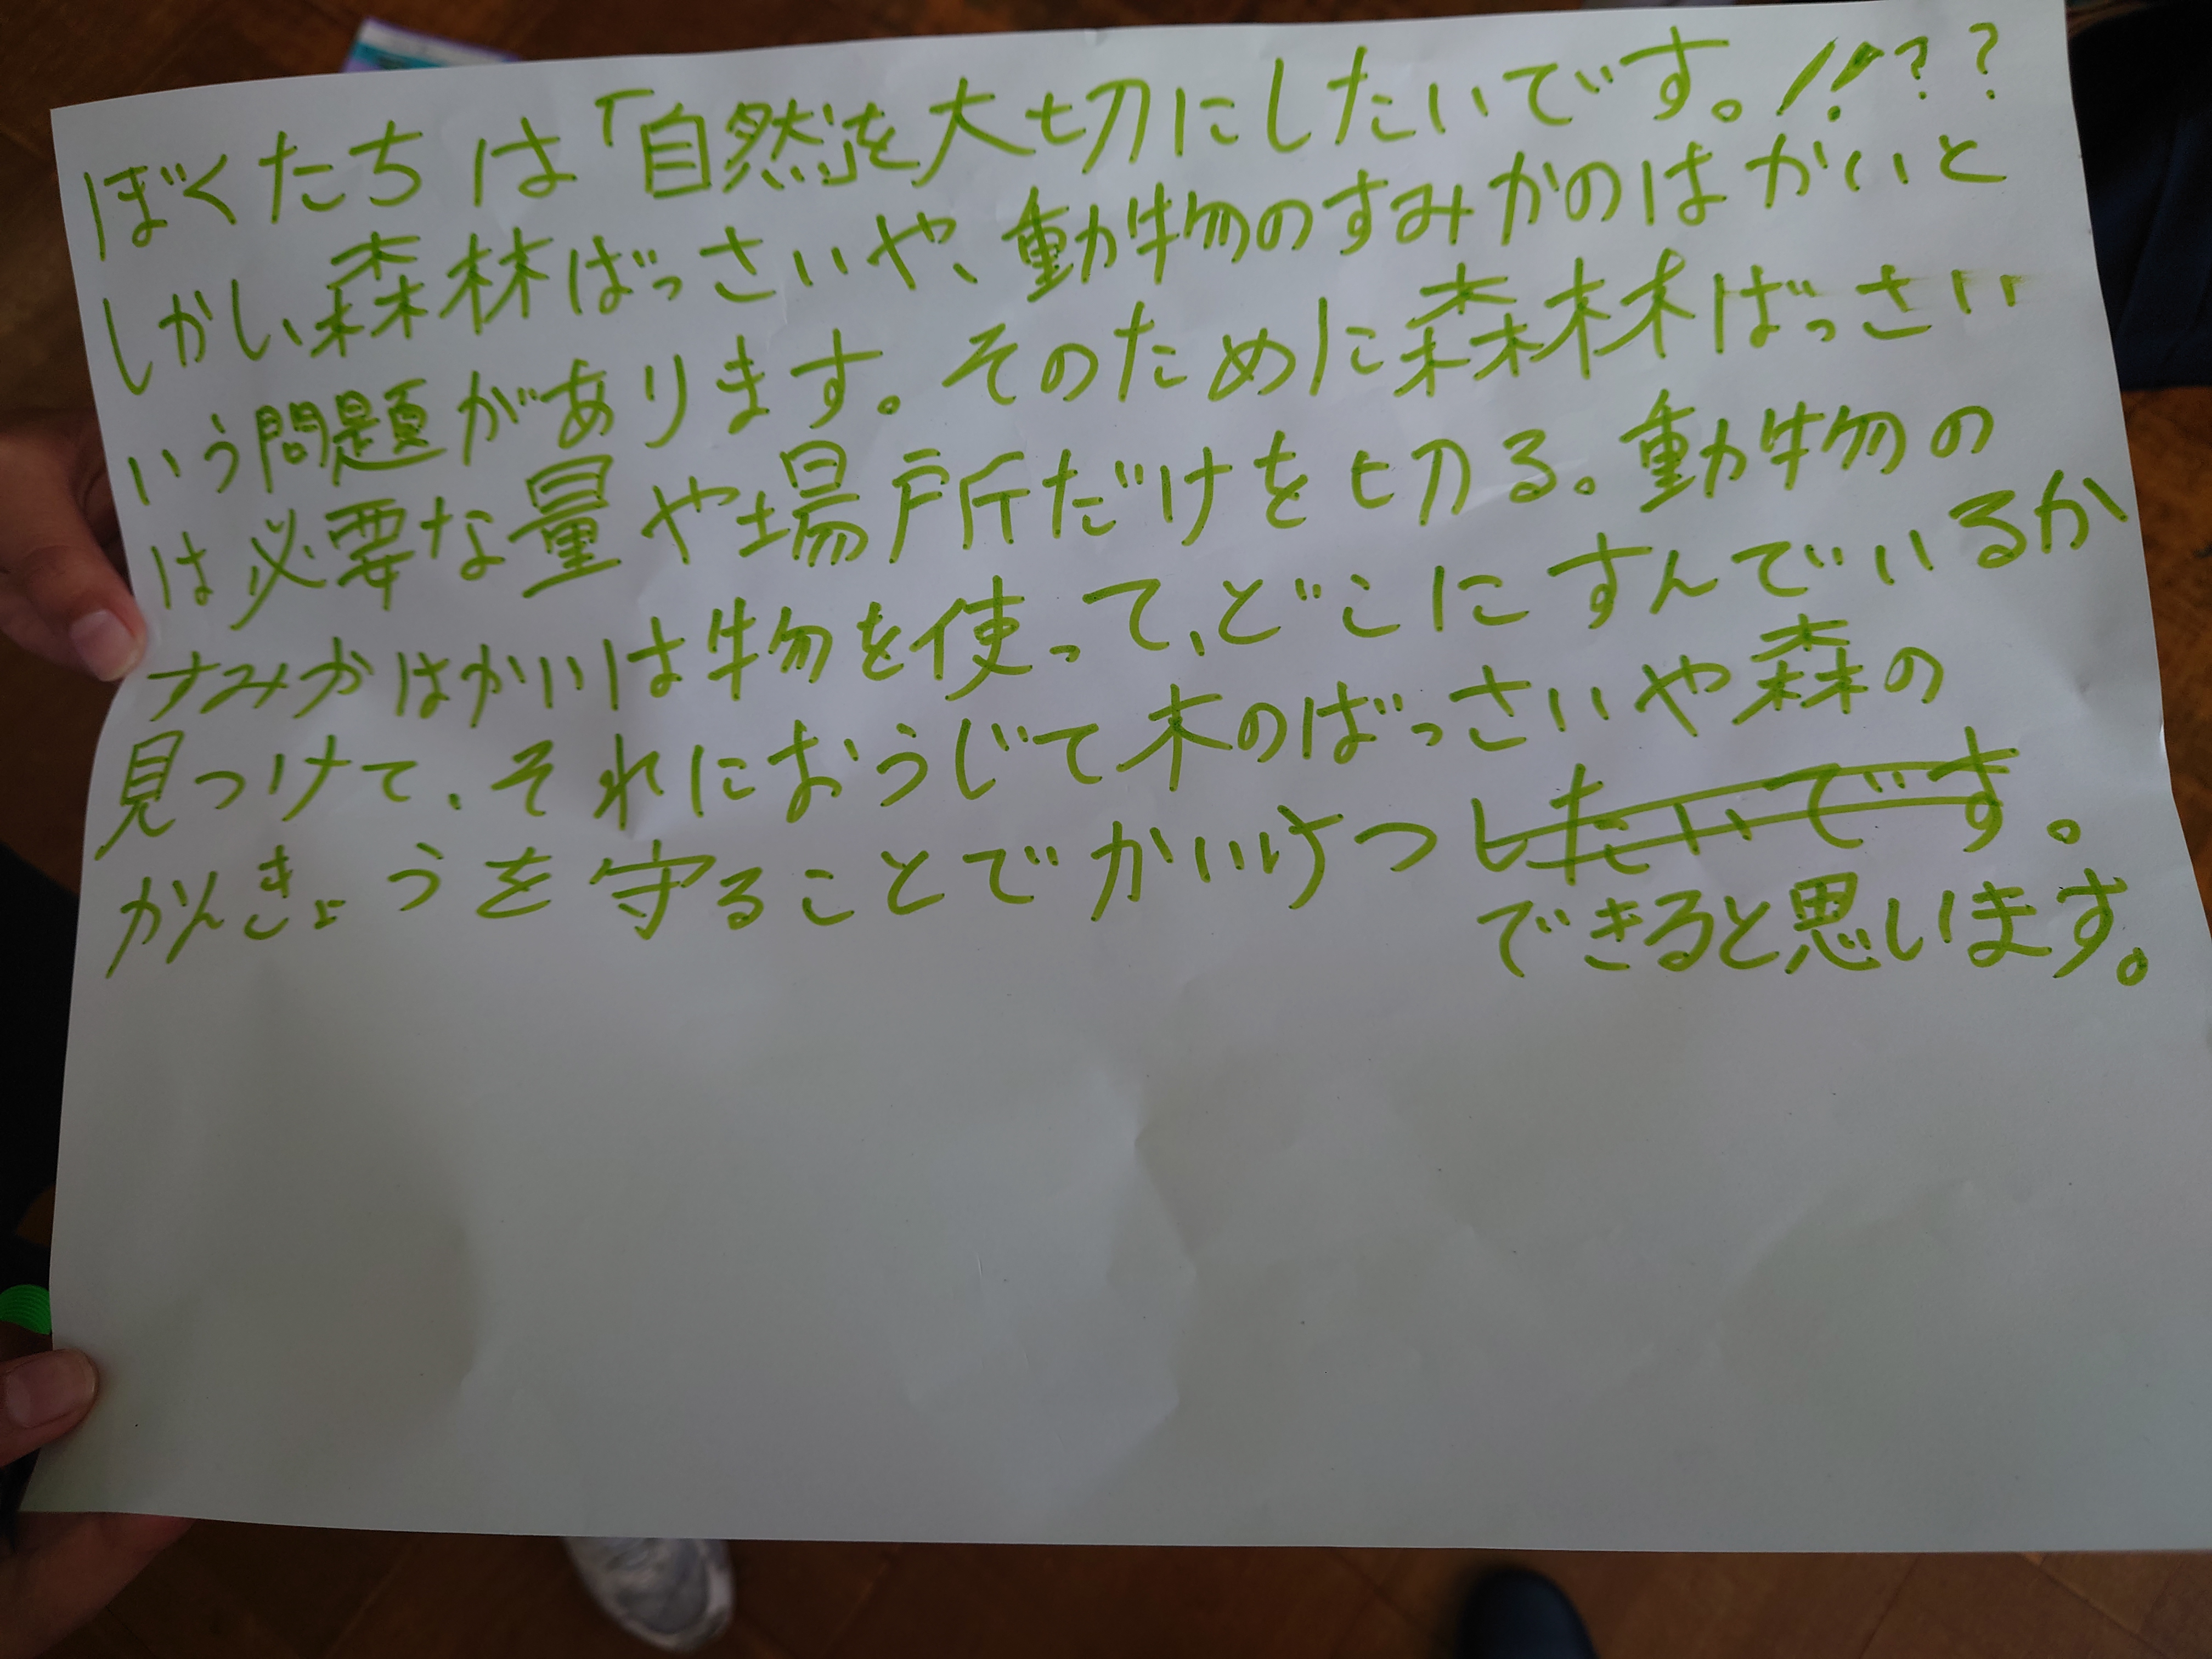 ぼくたちは「自然」を大切にしたいです。!!??
しかし、森林ばっさいや、動物のすみかのはかいと
いう問題があります。そのために森林ばっさい
は必要な量や場所だけを切る。動物の
すみかはかいは物を使って、どこにすんでいるか
見つけて、それにおうじて木のばっさいや森の
かんきょうを守ることでかいけつしたいです。
できると思います。